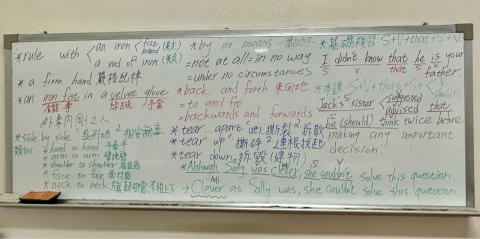 *rule with < an iron < fist (美式)
hand
a rod of iron (英式)
* a firm hand 嚴格紀律
* an iron fist in a velvet glove
絲絨 / 手套
外柔內剛之人
*side by side
* hand in hand 手牽手
* arm in arm
* shoulder to shoulder
* face to face 面對面
* neck to neck
* by no means 一點也不
= not at all = in no way
= under no circumstances
* back and forth 來回地
= to and fro
= backwards and forwards
*tear...apart 撕裂 拆散
*tear up 撕碎 連根拔起
*tear down 拆毀 (建物)
*Although Sally was clever, she couldn't solve this question.
→ Clever as Sally was, she couldn't solve this question.
*基礎複習 S+V+that+S+V
I didn't know that he is your
S V. that S V father.
Jack's sister advised that
he (should) think twice before
making any important
decision.